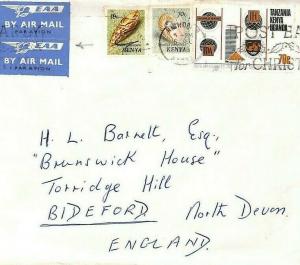 EAA
BY AIR MAIL
PAR AVION
EAA
BY AIR MAIL
PAR AVION
KENYA
KENYA
TANZANIA
KENYA
UGANDA
70c
POST EA
for CHRIST
H. L. Barnett, Esq.,
"Brunswick House"
Torridge Hill
BIDEFORD North Devon.
ENGLAND.